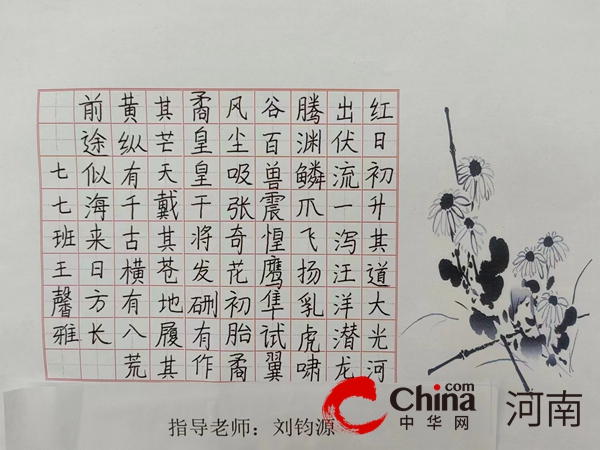 红日初升其道大光河
出伏流一泻汪洋潜龙
腾渊鳞爪飞扬乳虎啸
谷百兽震惶鹰隼试翼
风尘吸张奇花初胎矞
矞皇皇干将发硎有作
其芒天戴其苍地履其
黄纵有千古横有八荒
前途似海来日方长
七七班王馨雅
指导老师：刘钧源
China.com
中华网
河南